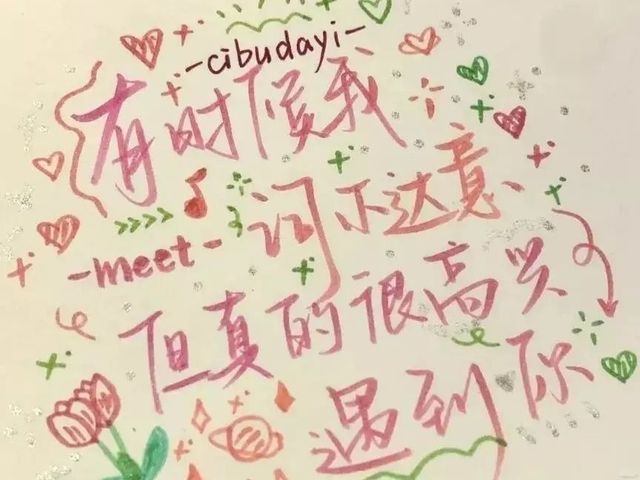 -cibudayi-
有时候我
词不达意
-meet-
但真的很高兴
遇到你